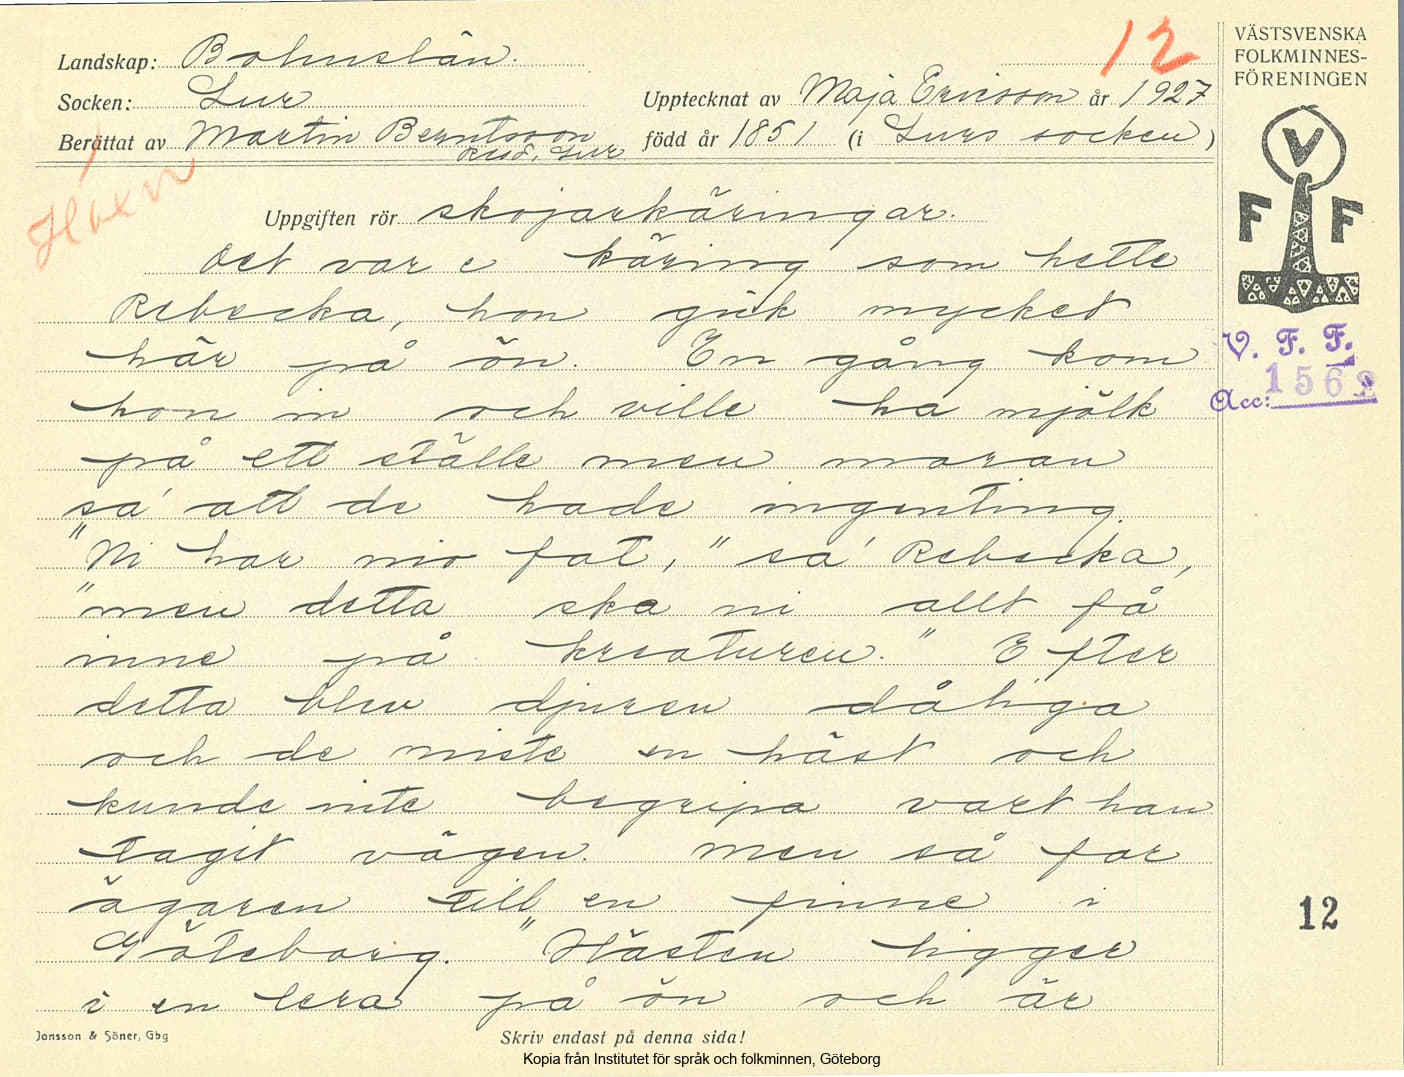 12
VÄSTSVENSKA
FOLKMINNES-
FÖRENINGEN
Landskap: Bohuslän.
Socken: Lur
Upptecknat av Maja Ericsson år 1927
Berättat av Martin Berntsson
Lur
född år 1851 (i Lurs socken)
Häxa
Uppgiften rör skojarkäringar.
V
F F
Det var e käring som hette
Rebecka, hon gick mycket
här på ön. En gång kom
hon in och ville ha mjölk
på ett ställe men moran
sa' att de hade ingenting.
"Ni har nio fat," sa' Rebecka,
"men detta ska ni allt få
inne på kreaturen." Efter
detta blev djuren dåliga
och de miste en häst och
kunde inte begripa vart han
tagit vägen. Men så for
ägaren till en finne i
Göteborg. "Hästen ligger
i en lera på ön och är
V. F. F.
Acc: 1562
12
Jonsson & Söner, Gbg
Skriv endast på denna sida!
Kopia från Institutet för språk och folkminnen, Göteborg